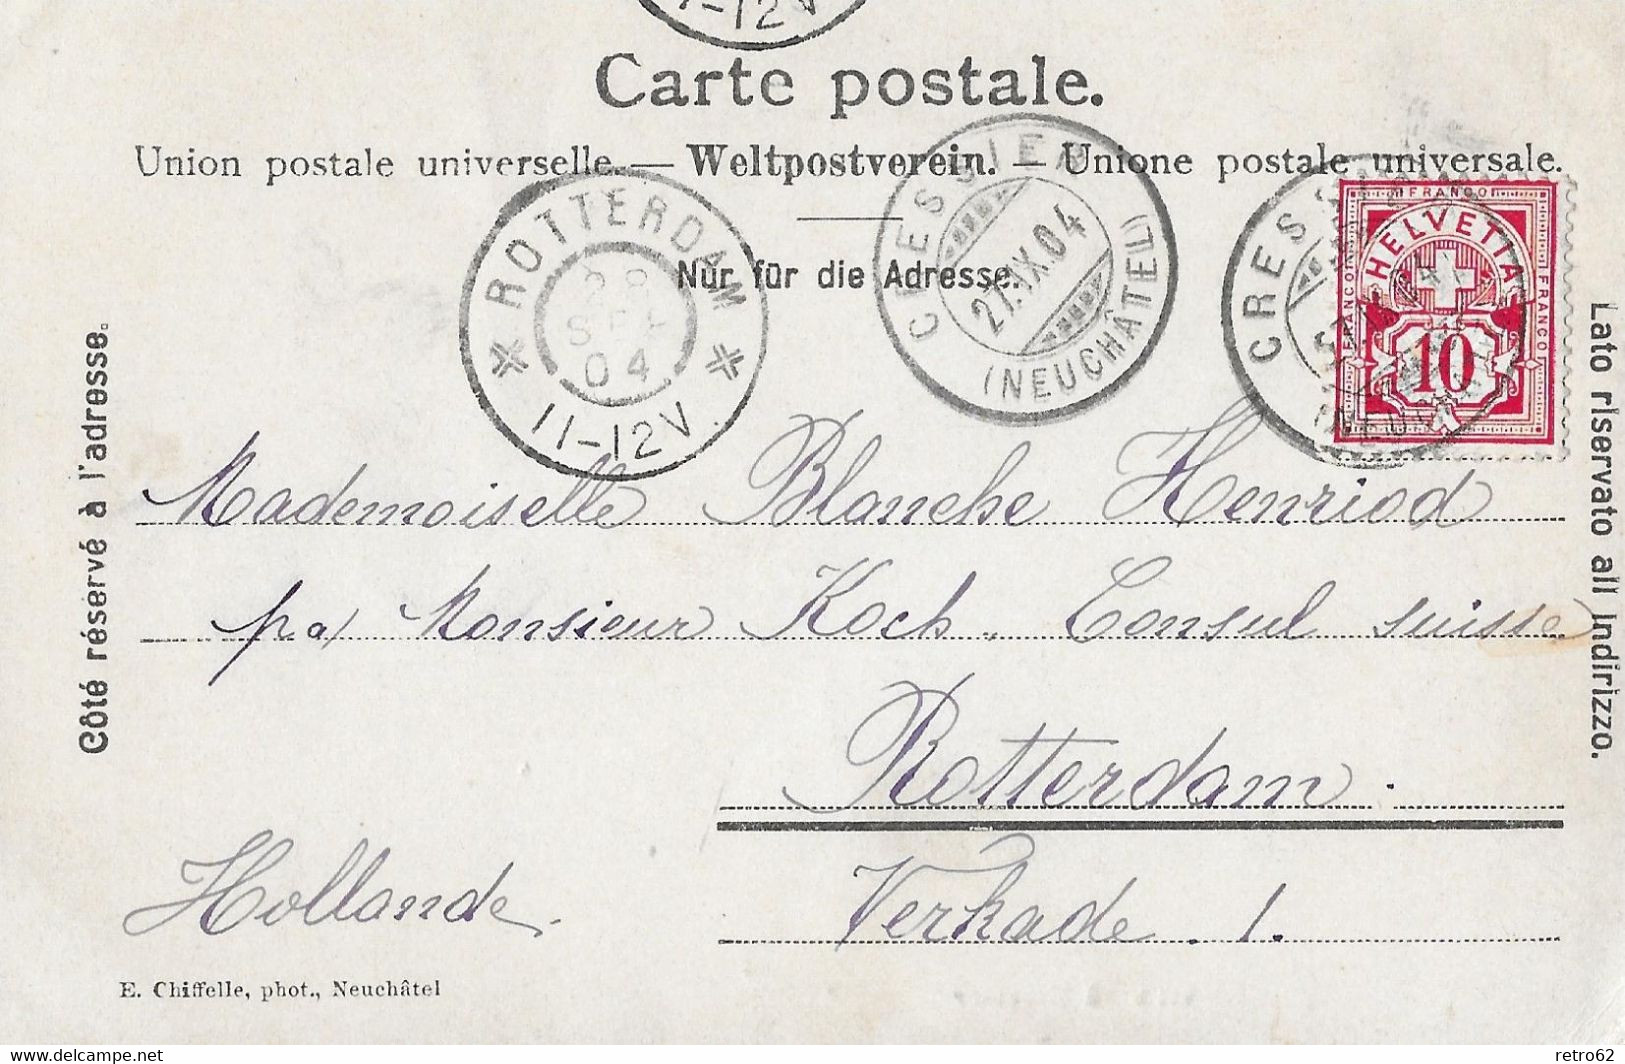 1-12V
Carte postale.
Union postale universelle. — Weltpostverein. — Unione postale universale.
Nur für die Adresse.
ROTTERDAM
28
SEP
04
11-12V.
CRESSIER
27.IX.04
(NEUCHÂTEL)
CRESSIER
(NEUCHÂTEL)
FRANCO
HELVETIA
FRANCO
FRANCO
10
Côté réservé à l'adresse.
Lato riservato all indirizzo.
Mademoiselle Blanche Henriod
pa/ Monsieur Koch. Consul suisse
Rotterdam.
Hollande. Verkade. 1.
E. Chiffelle, phot., Neuchâtel
delcampe.net
retro62